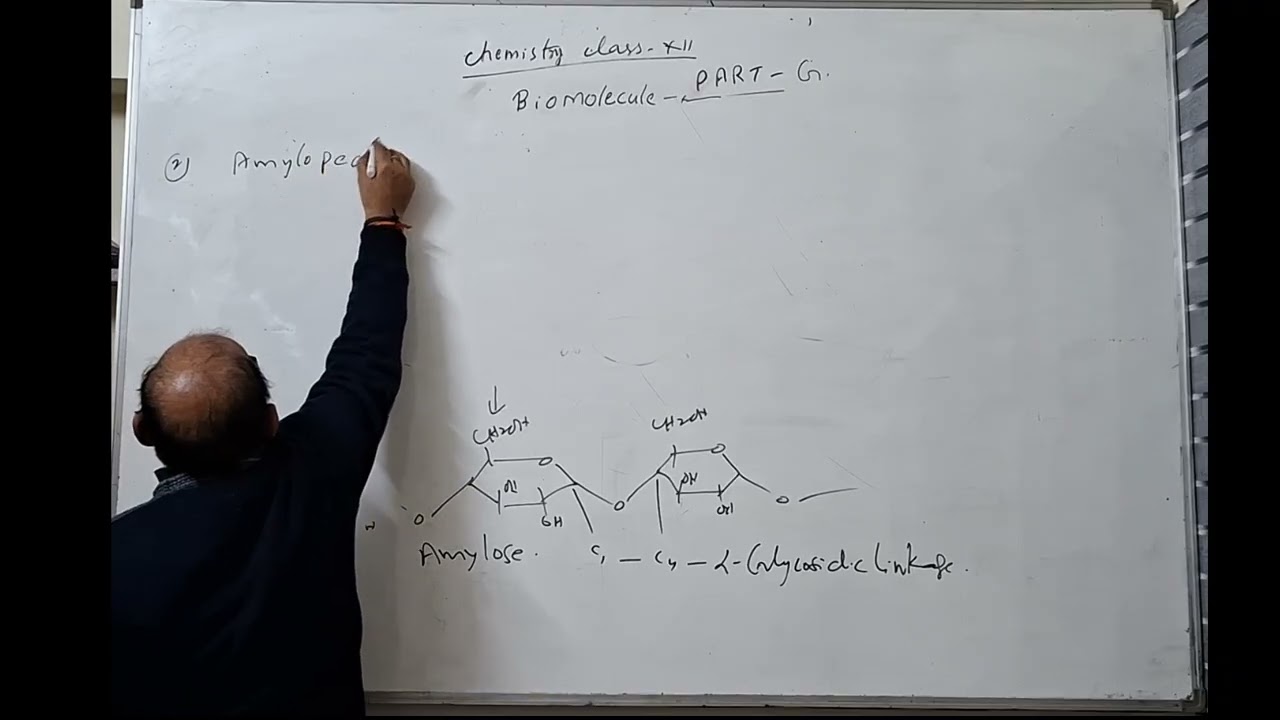 Chemistry class-XII
Biomolecule - PART-G.
2) Amylopec
CH2OH CH2OH
O O
OH OH
O OH O OH O
Amylose. C1 - C4 - α-Glycosidic linkage.